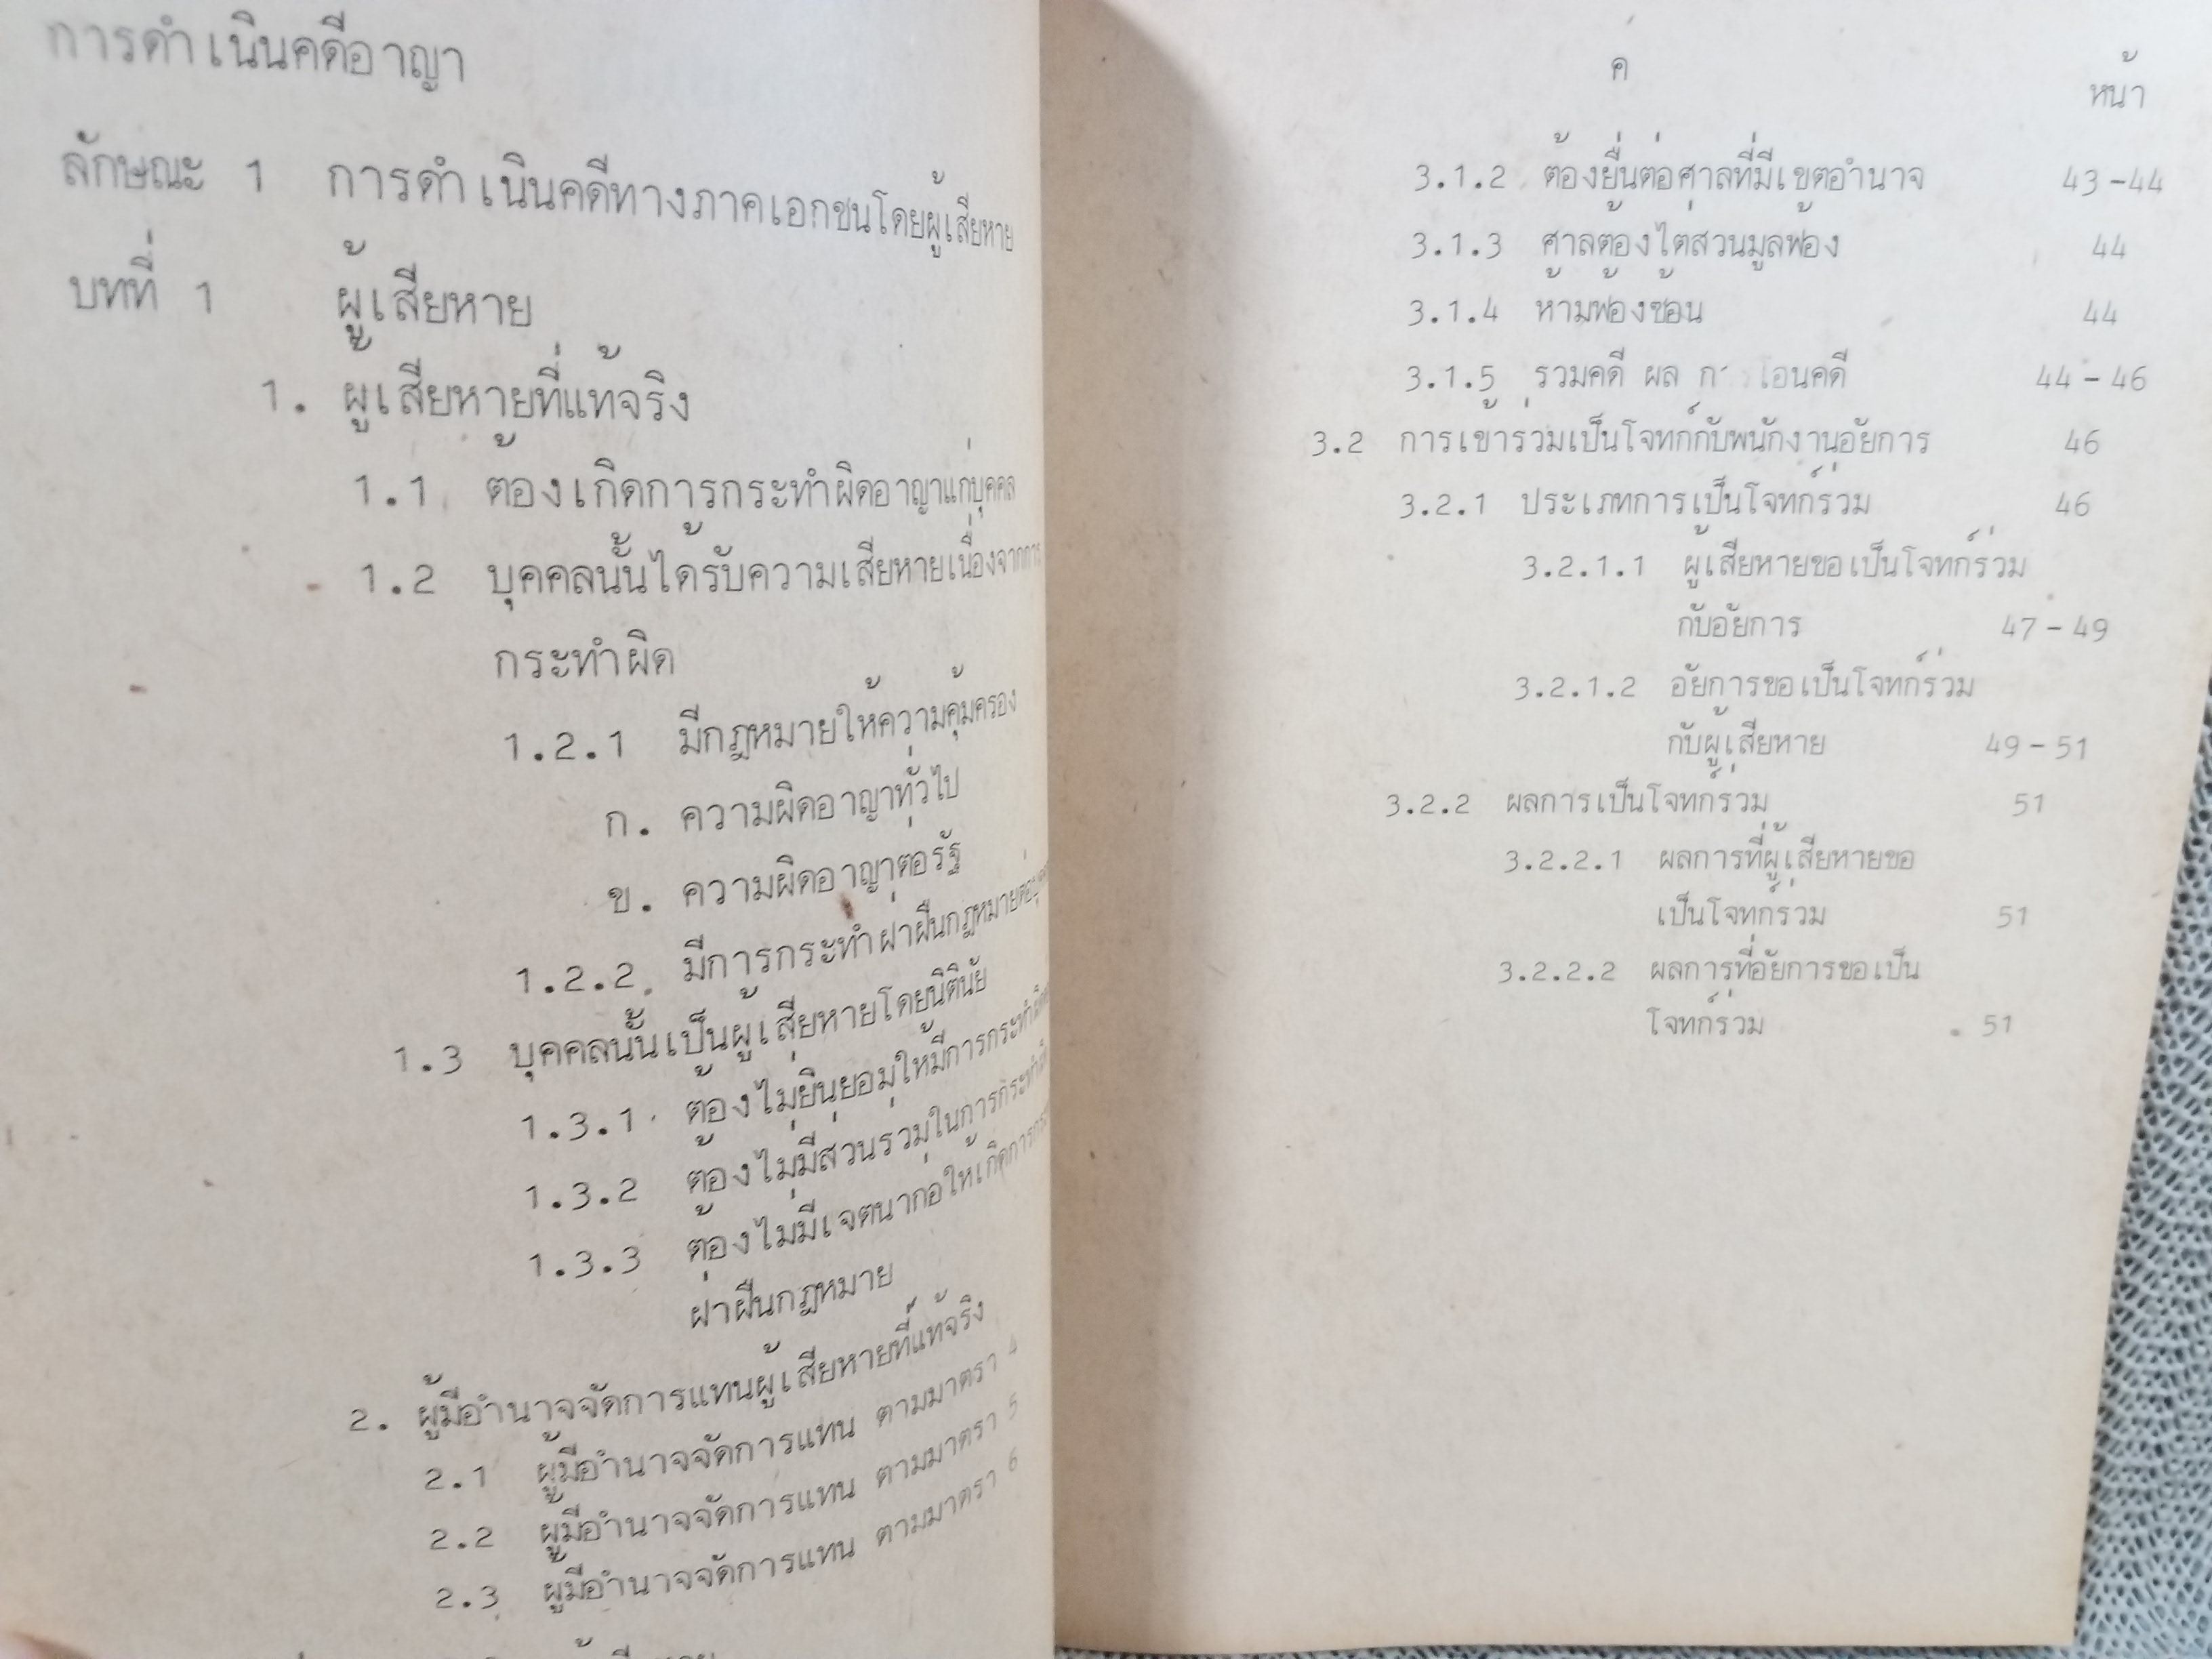 การดำเนินคดีอาญา
ลักษณะ 1 การดำเนินคดีทางภาคเอกชนโดยผู้เสียหาย
บทที่ 1 ผู้เสียหาย
1. ผู้เสียหายที่แท้จริง
1.1 ต้องเกิดการกระทำผิดอาญาแก่บุคคล
1.2 บุคคลนั้นได้รับความเสียหายเนื่องจากการ
กระทำผิด
1.2.1 มีกฎหมายให้ความคุ้มครอง
ก. ความผิดอาญาทั่วไป
ข. ความผิดอาญาต่อรัฐ
1.2.2 มีการกระทำฝ่าฝืนกฎหมายต่อ
1.3 บุคคลนั้นเป็นผู้เสียหายโดยนิตินัย
1.3.1 ต้องไม่ยินยอมให้มีการกระทำผิด
1.3.2 ต้องไม่มีส่วนร่วมในการกระทำผิด
1.3.3 ต้องไม่มีเจตนาก่อให้เกิดการ
ฝ่าฝืนกฎหมาย
2. ผู้มีอำนาจจัดการแทนผู้เสียหายที่แท้จริง
2.1 ผู้มีอำนาจจัดการแทน ตามมาตรา 4
2.2 ผู้มีอำนาจจัดการแทน ตามมาตรา 5
2.3 ผู้มีอำนาจจัดการแทน ตามมาตรา 6
ค
หน้า
3.1.2 ต้องยื่นต่อศาลที่มีเขตอำนาจ 43-44
3.1.3 ศาลต้องไต่สวนมูลฟ้อง 44
3.1.4 ห้ามฟ้องซ้อน 44
3.1.5 รวมคดี ผล โอนคดี 44-46
3.2 การเข้าร่วมเป็นโจทก์กับพนักงานอัยการ 46
3.2.1 ประเภทการเป็นโจทก์ร่วม 46
3.2.1.1 ผู้เสียหายขอเป็นโจทก์ร่วม
กับอัยการ 47-49
3.2.1.2 อัยการขอเป็นโจทก์ร่วม
กับผู้เสียหาย 49-51
3.2.2 ผลการเป็นโจทก์ร่วม 51
3.2.2.1 ผลการที่ผู้เสียหายขอ
เป็นโจทก์ร่วม 51
3.2.2.2 ผลการที่อัยการขอเป็น
โจทก์ร่วม 51